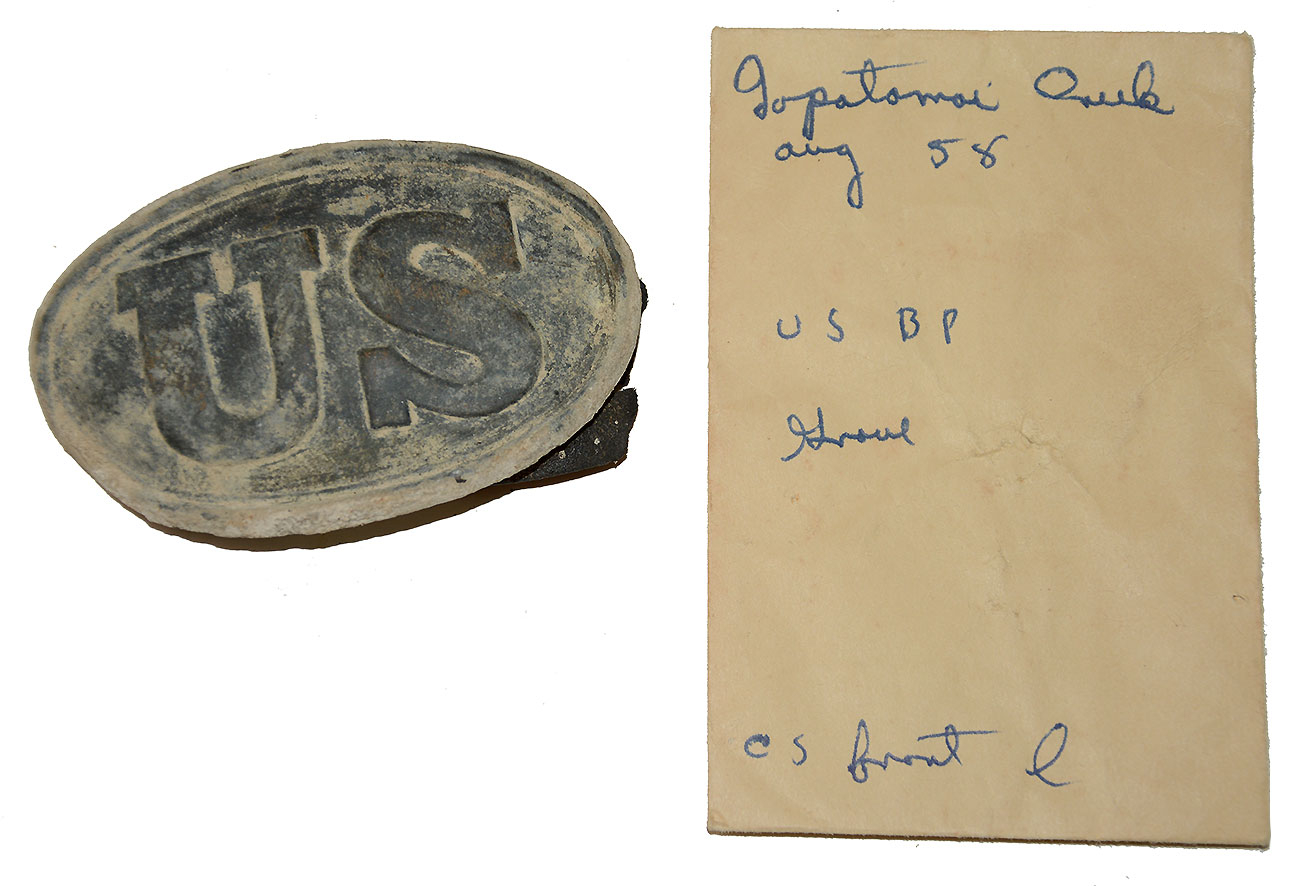 US
Topatomoi Creek
aug 58
US BP
Grave
CS front l